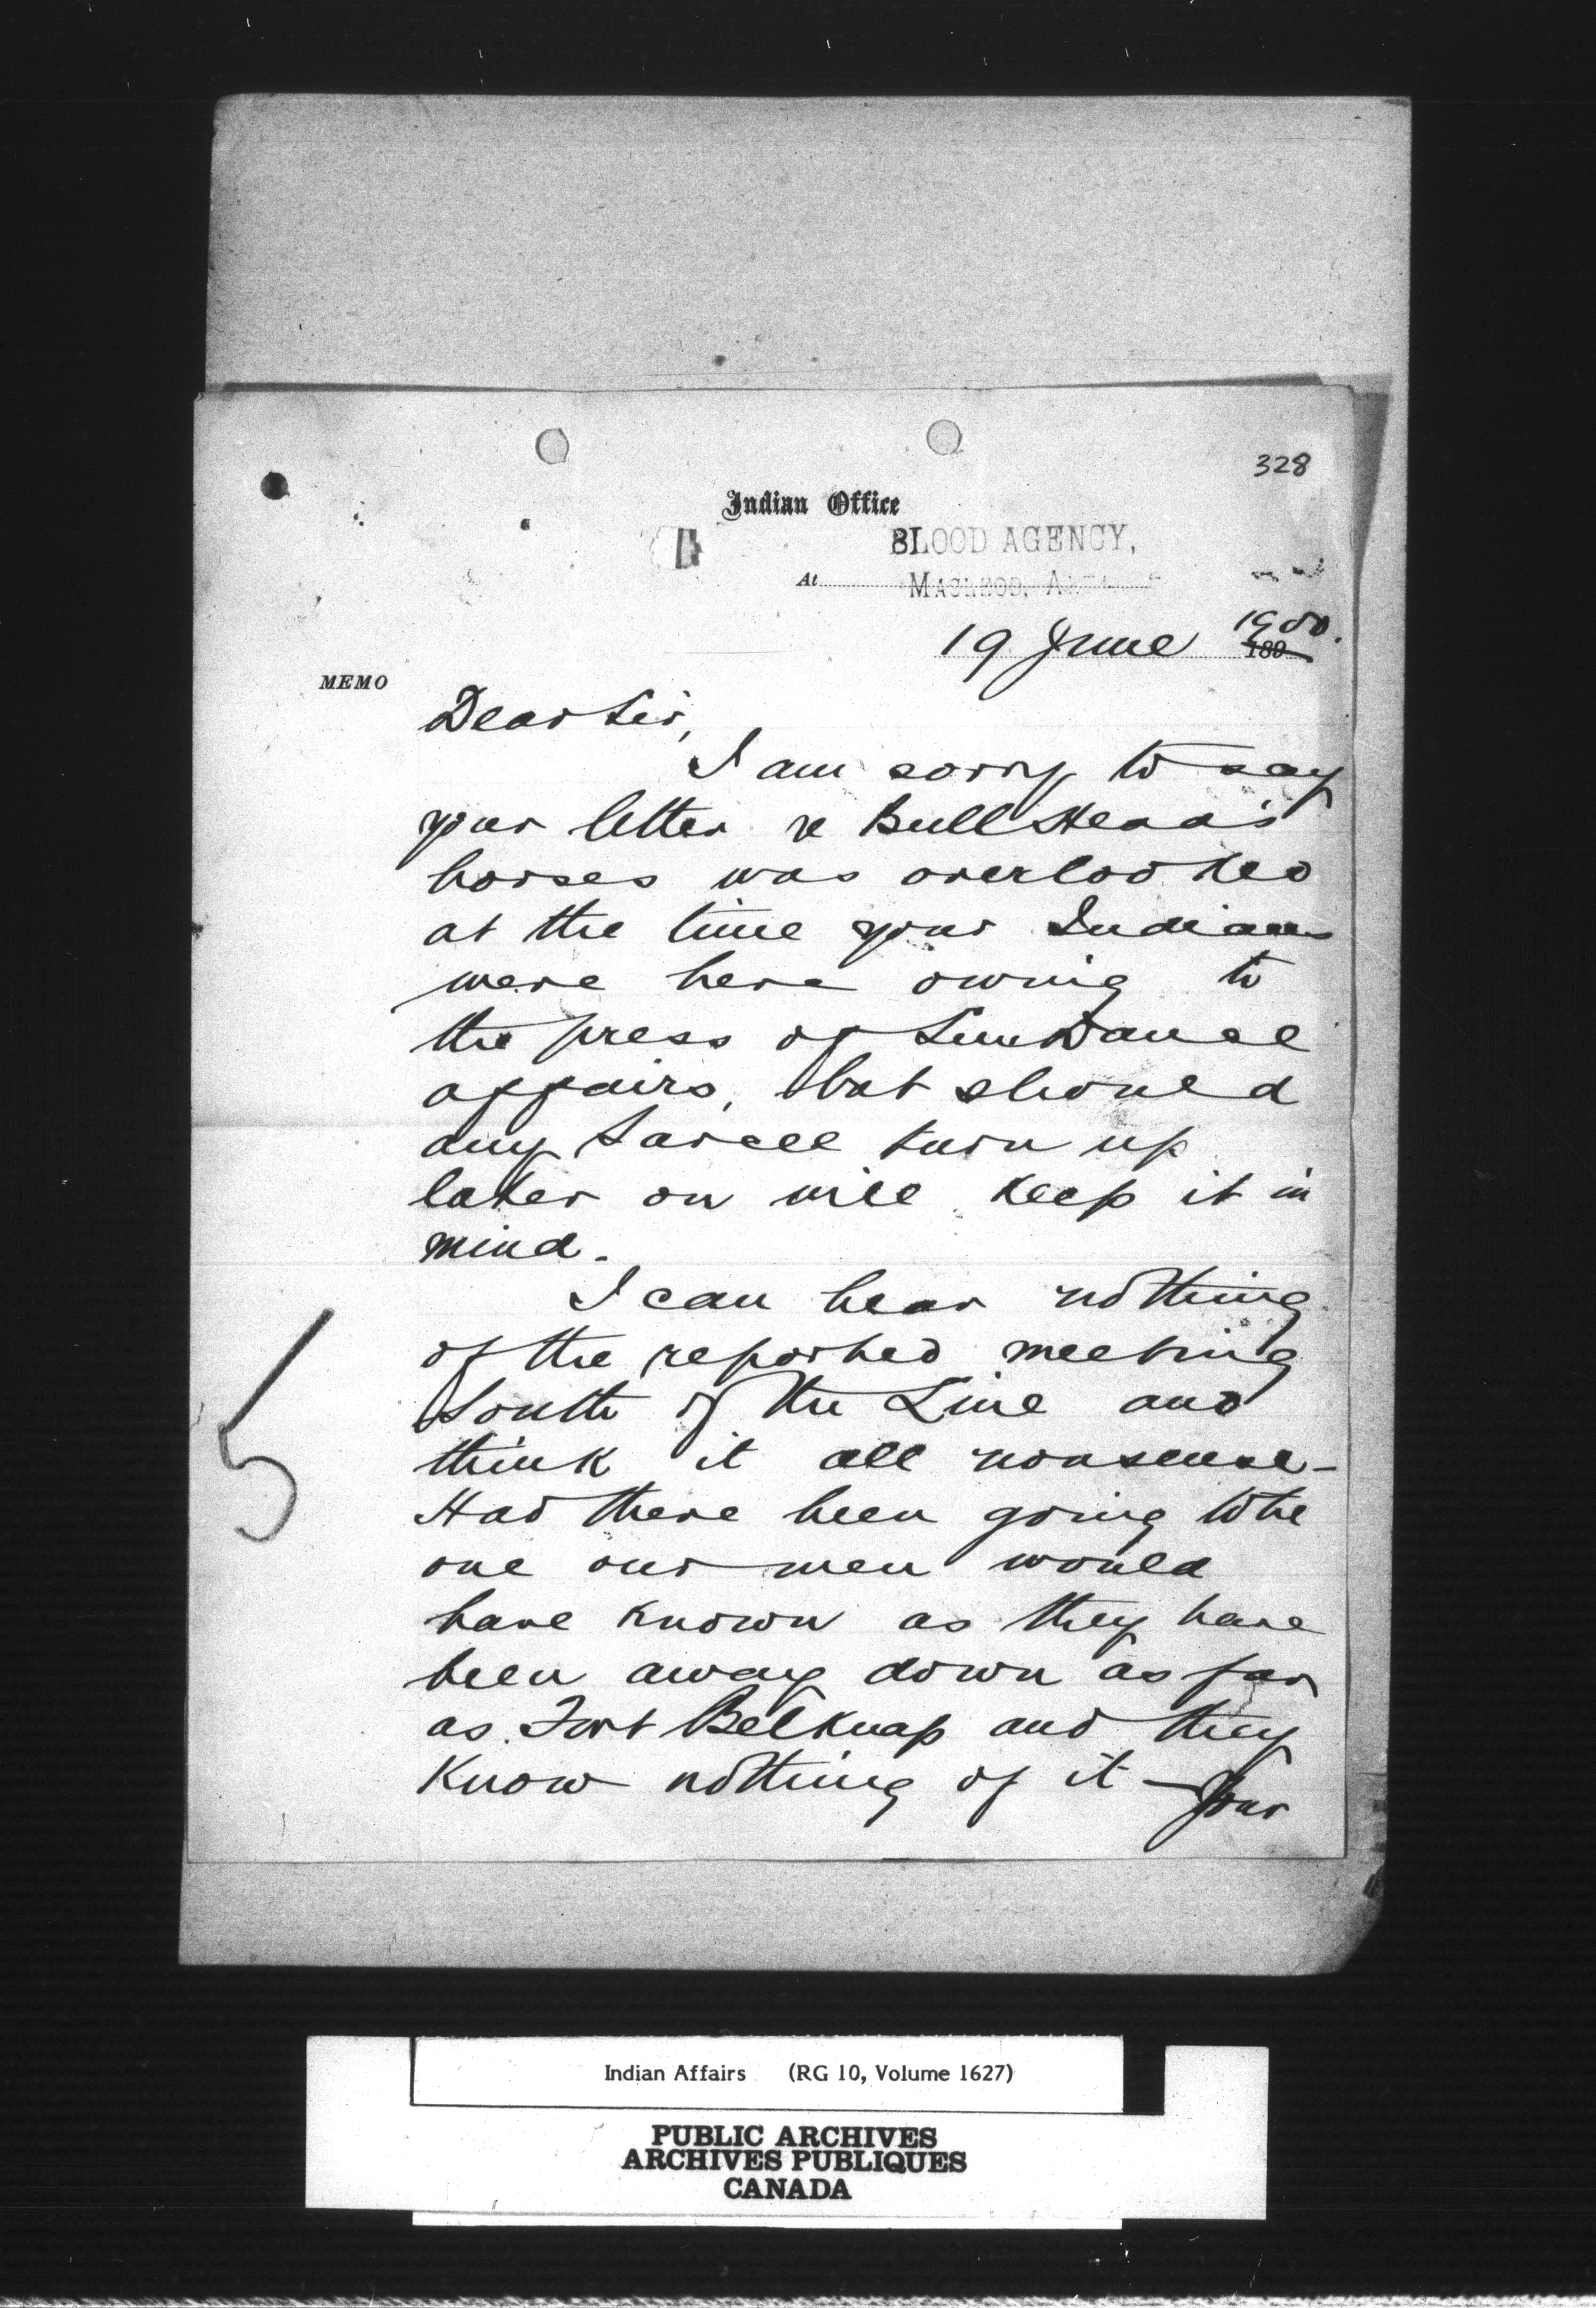 328
Indian Office
BLOOD AGENCY,
At MACLEOD, ALTA.
19 June 1900.
189
MEMO
Dear Sir,
I am sorry to say
your letter re Bull Head's
horses was overlooked
at the time your Indians
were here owing to
the press of Sun Dance
affairs, but should
any Sarcee turn up
later on will keep it in
mind.
I can hear nothing
of the reported meeting
South of the Line and
think it all nonsense -
Had there been going to be
one our men would
have known as they have
been away down as far
as Fort Belknap and they
know nothing of it - Your
5
Indian Affairs (RG 10, Volume 1627)
PUBLIC ARCHIVES
ARCHIVES PUBLIQUES
CANADA